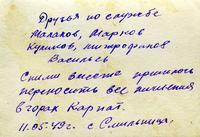 Друзья по службе
Малахов, Марков
Куликов, Митрофанов
Васильев
С ними вместе пришлось
переносить все лишения
в горах Карпат.
11.05.49 г. с. Смильница.